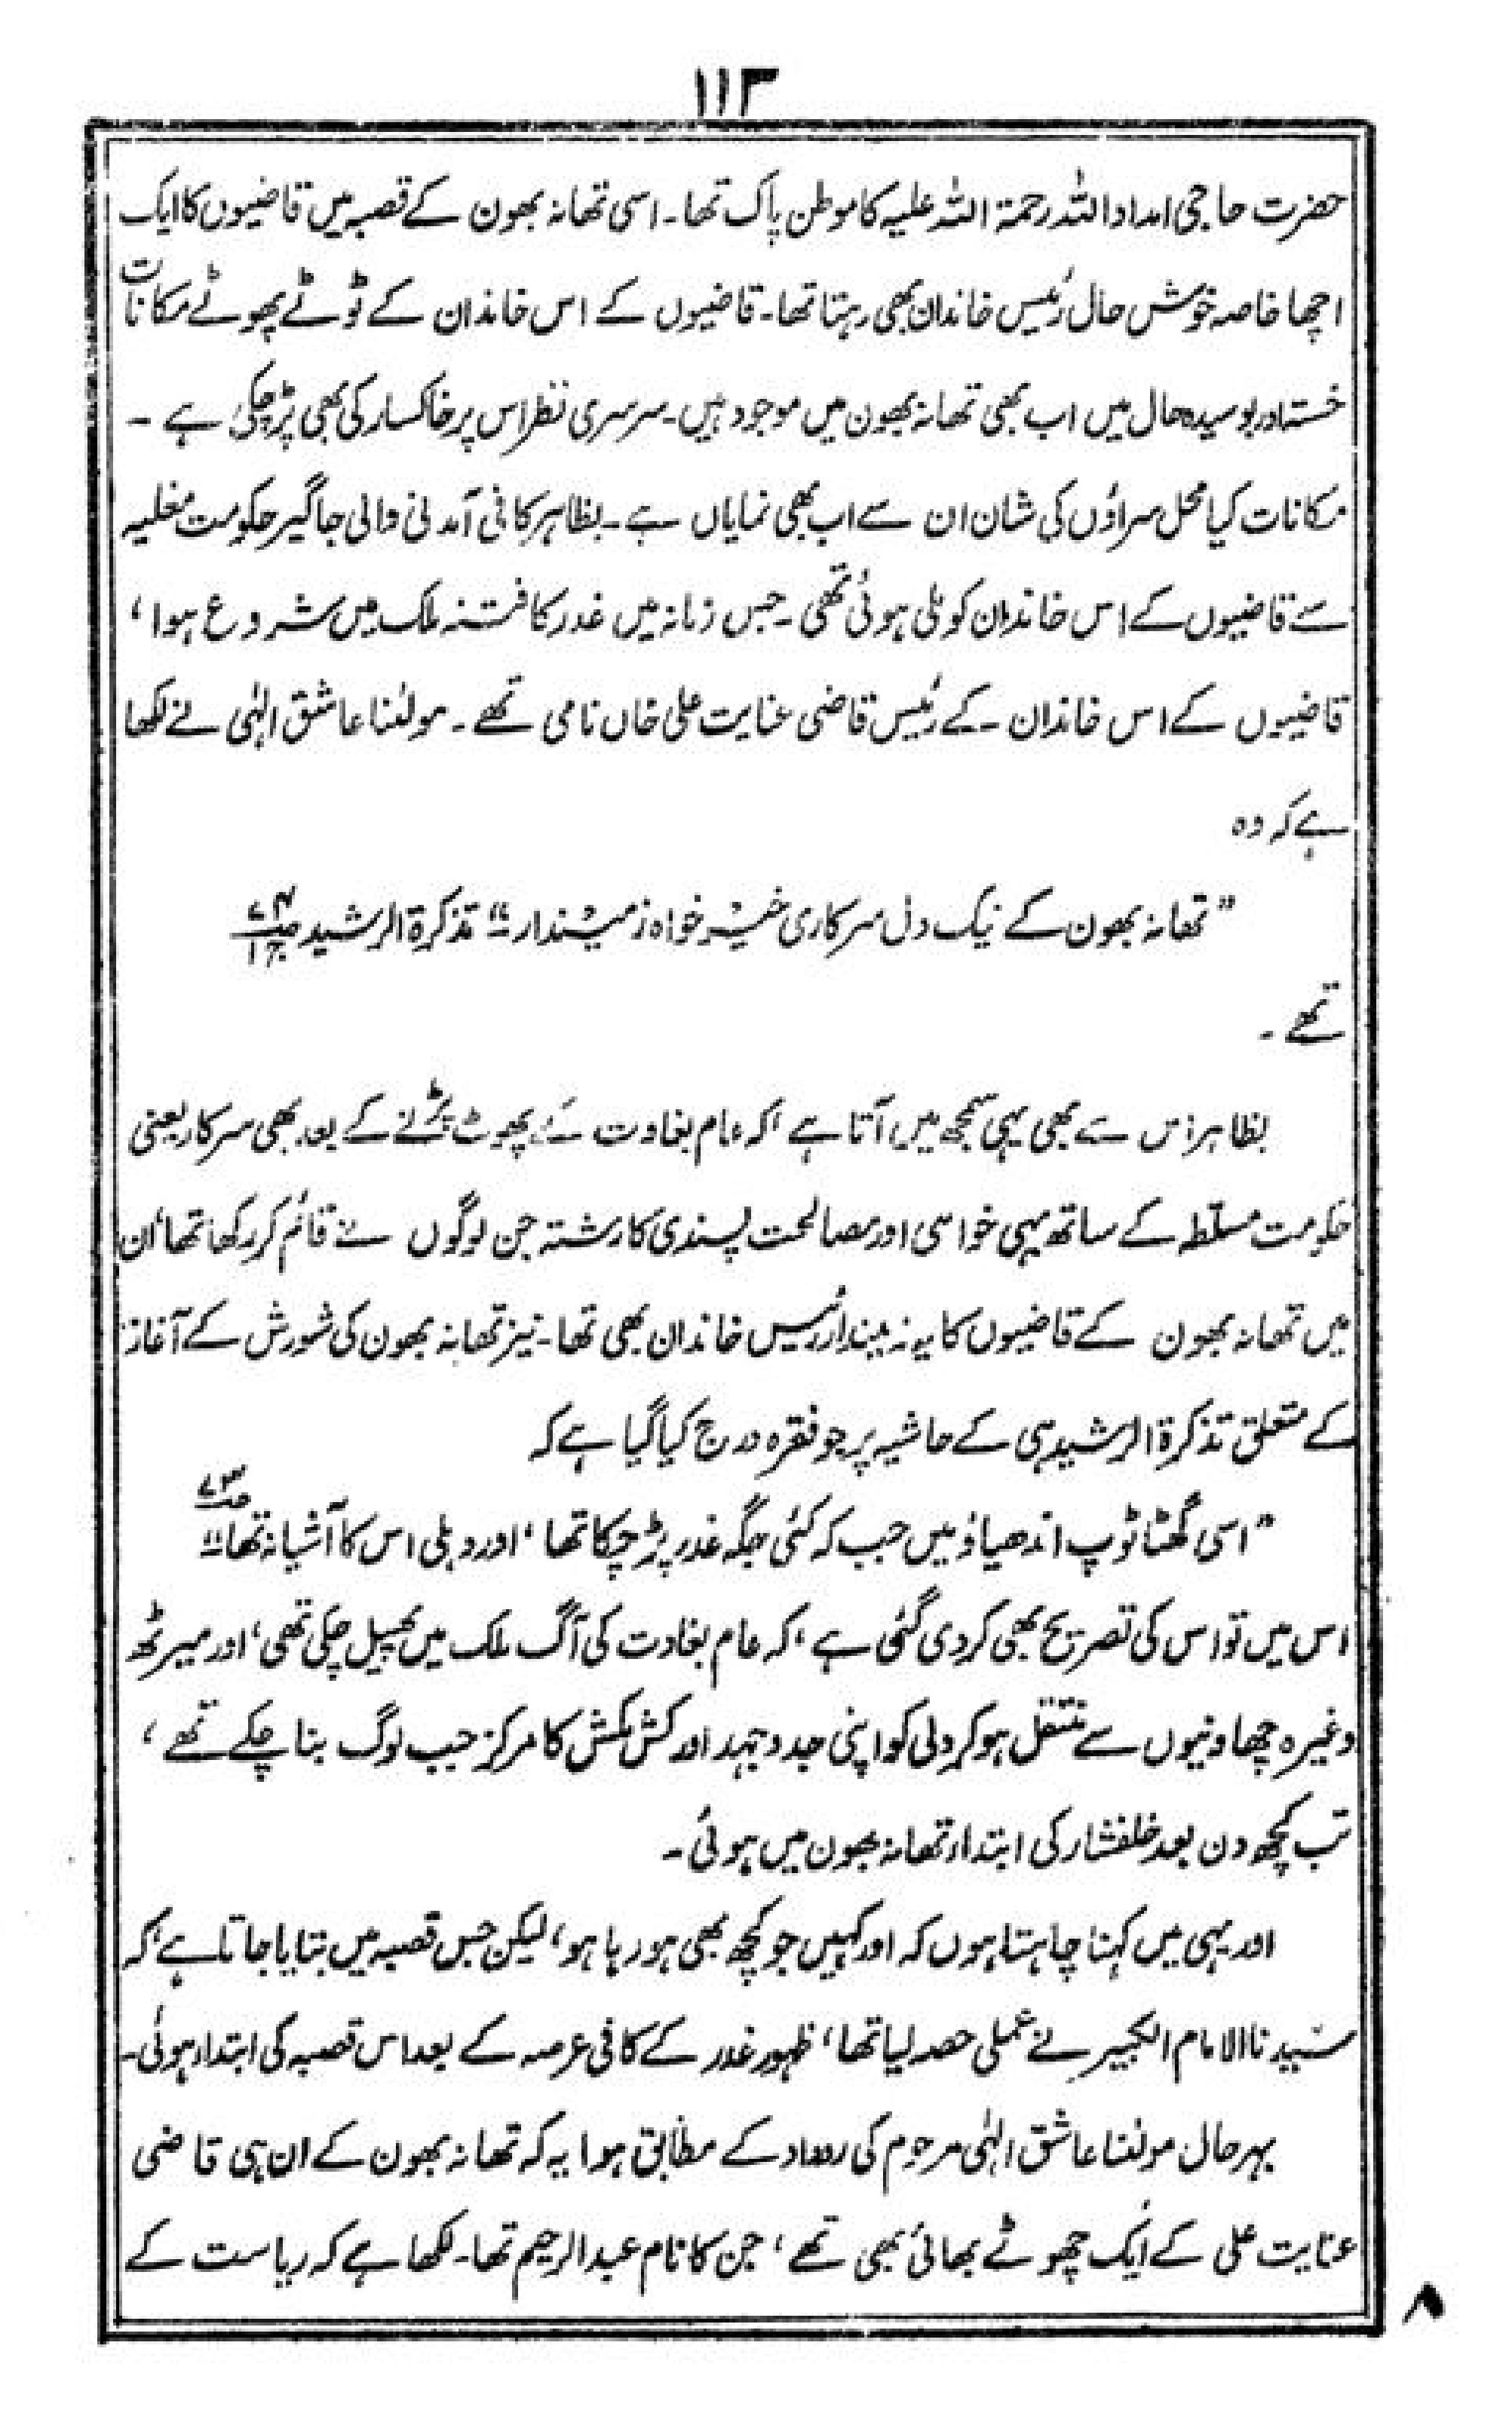 ۱۱۳
حضرت حاجی امداد اللہ رحمۃ اللہ علیہ کا موطن پاک تھا۔ اسی تھانہ بھون کے قصبہ میں قاضیوں کا ایک
اچھا خاصہ خوش حال رئیس خاندان بھی رہتا تھا۔ قاضیوں کے اس خاندان کے ٹوٹے پھوٹے مکانات
خستہ اور بوسیدہ حال میں اب بھی تھانہ بھون میں موجود ہیں۔ سرسری نظر اس پر خاکسار کی بھی پڑ چکی ہے ۔
مکانات کیا محل سراؤں کی شان ان سے اب بھی نمایاں ہے۔ بظاہر کافی آمدنی والی جاگیر حکومت مغلیہ
سے قاضیوں کے اس خاندان کو ملی ہوئی تھی ۔ جس زمانہ میں غدر کا فتنہ ملک میں شروع ہوا ،
قاضیوں کے اس خاندان ۔ کے رئیس قاضی عنایت علی خاں نامی تھے ۔ مولٰنا عاشق الٰہی نے لکھا
ہے کہ وہ
”تھانہ بھون کے نیک دل سرکاری خیر خواہ زمیندار“ تذکرۃ الرشید ص۷۴ ج۱
تھے ۔
بظاہر اس سے بھی یہی سمجھ میں آتا ہے ، کہ عام بغاوت کے پھوٹ پڑنے کے بعد بھی سرکار یعنی
حکومت مسلّطہ کے ساتھ یہی خواہی اور مصالحت پسندی کا رشتہ جن لوگوں نے قائم کر رکھا تھا، ان
میں تھانہ بھون کے قاضیوں کا یہ زمیندار رئیس خاندان بھی تھا۔ نیز تھانہ بھون کی شورش کے آغاز
کے متعلق تذکرۃ الرشید ہی کے حاشیہ پر جو فقرہ درج کیا گیا ہے کہ
”اسی گھٹا ٹوپ اندھیاؤ میں جب کہ کئی جگہ غدر پڑ چکا تھا ، اور دہلی اس کا آشیانہ تھا“ ص۷۳
اس میں تو اس کی تصریح بھی کر دی گئی ہے ، کہ عام بغاوت کی آگ ملک میں پھیل چکی تھی ، اور میرٹھ
وغیرہ چھاونیوں سے منتقل ہو کر دلی کو اپنی جدوجہد اور کش مکش کا مرکز جب لوگ بنا چکے تھے ،
تب کچھ دن بعد خلفشار کی ابتداء تھانہ بھون میں ہوئی۔
اور یہی میں کہنا چاہتا ہوں کہ اور کہیں جو کچھ بھی ہو رہا ہو ، لیکن جس قصبہ میں بتایا جاتا ہے ، کہ
سیدنا الامام الکبیر نے عملی حصہ لیا تھا ، ظہور غدر کے کافی عرصہ کے بعد اس قصہ کی ابتداء ہوئی۔
بہر حال مولٰنا عاشق الٰہی مرحوم کی روداد کے مطابق ہوا یہ کہ تھانہ بھون کے ان ہی قاضی
عنایت علی کے ایک چھوٹے بھائی بھی تھے ، جن کا نام عبدالرحیم تھا۔ لکھا ہے کہ ریاست کے
۸